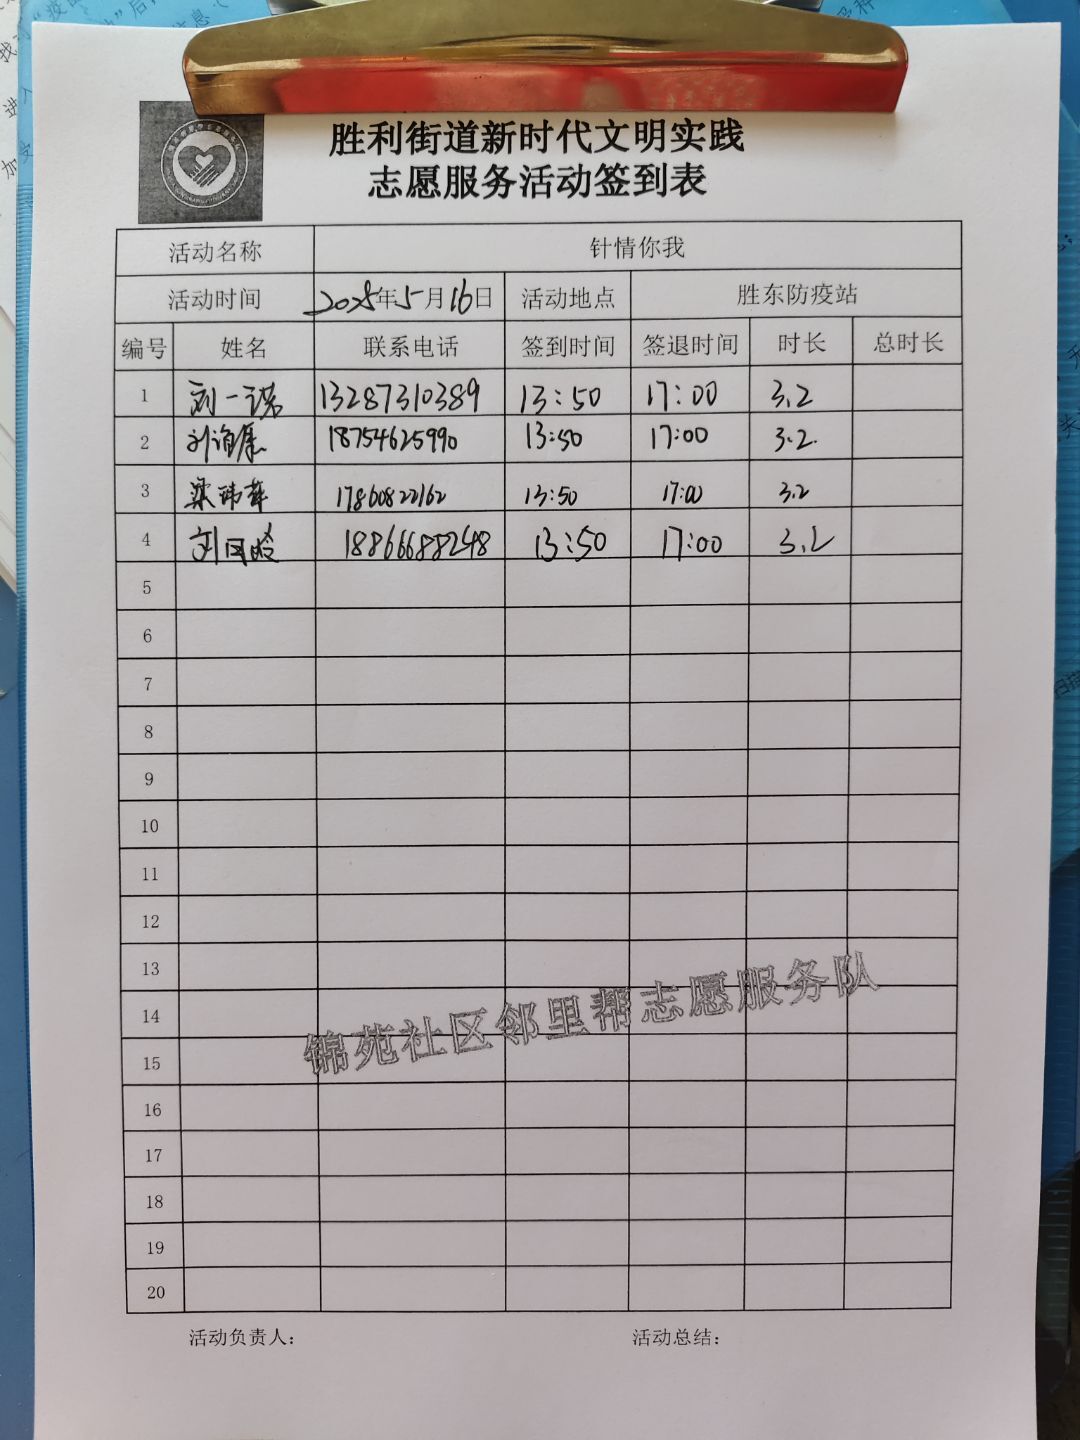 胜利街道新时代文明实践
志愿服务活动签到表
活动名称 针情你我
活动时间 2025年5月16日 活动地点 胜东防疫站
编号 姓名 联系电话 签到时间 签退时间 时长 总时长
1 刘一诺 13287310389 13:50 17:00 3.2
2 刘 18754625990 13:50 17:00 3.2
3 梁玮 17860822162 13:50 17:00 3.2
4 刘 18866688248 13:50 17:00 3.2
5
6
7
8
9
10
11
12
13
14
15
16
17
18
19
20
锦苑社区邻里帮志愿服务队
活动负责人: 活动总结: